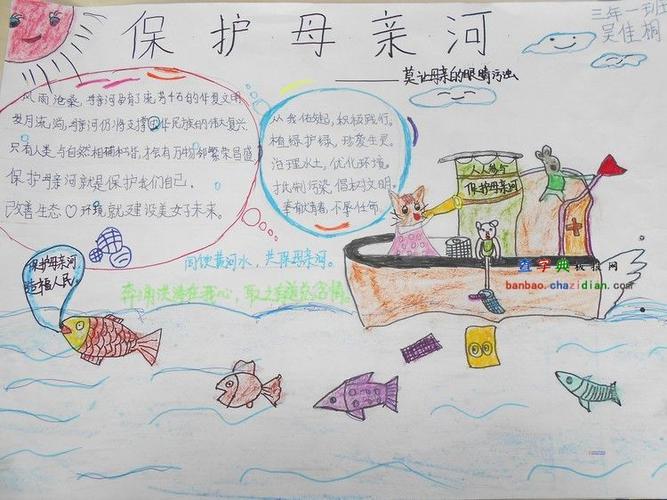 保护母亲河
三年一班
吴佳桐
莫让母亲的眼睛污浊
风雨沧桑,母亲河孕育了流芳千古的华夏文明
岁月流淌,母亲河仍将支撑中华民族的伟大复兴
只有人类与自然相辅和谐,才会有万物繁荣昌盛
保护母亲河就是保护我们自己.
改善生态环境就建设美好未来.
从我做起,积极践行,
植绿护绿,珍爱生灵.
治理水土,优化环境.
抵制污染,倡树文明.
人人参与
保护母亲河
同饮黄河水,共保母亲河.
保护母亲河
造福人民.
查字典教报网
banbao.chazidian.com